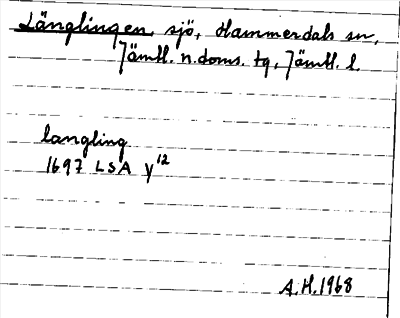 Länglingen, sjö, Hammerdals sn,
Jämtl. n. doms. tg, Jämtl. l.
langling
1697 LSA Y¹²
A.H. 1968